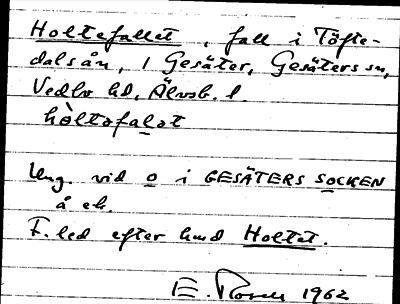 Holtefallet, fall i Töfte-
dalsån, 1 Gesäter, Gesäters sn,
Vedbo hd, Älvsb. l.
hòltəfalət
Ung. vid o i GESÄTERS SOCKEN
å ek.
F. led efter hmd Holtet.
E. 1962